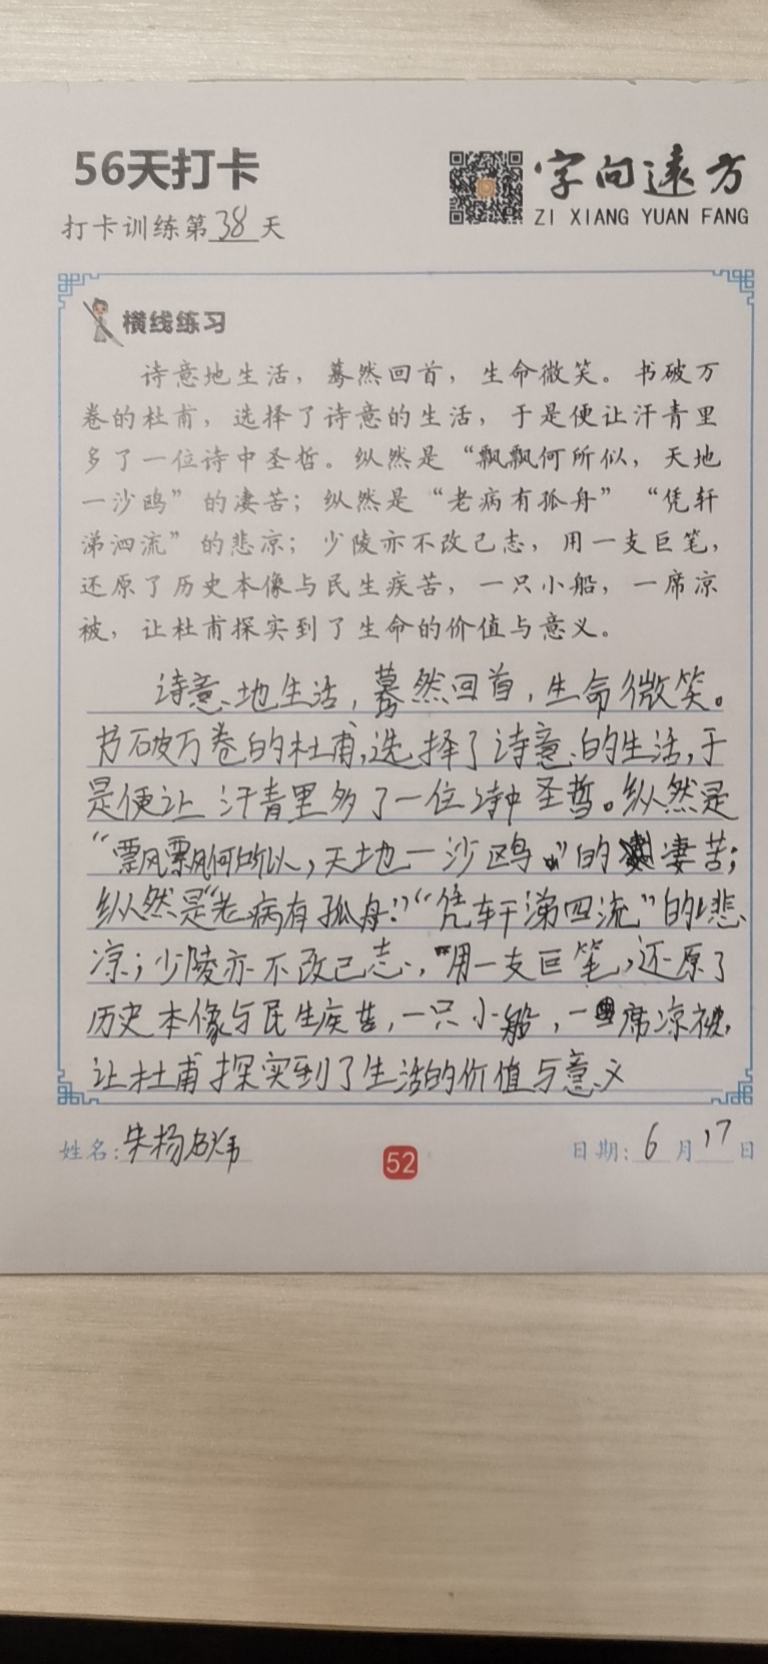 56天打卡
字向遠方
ZI XIANG YUAN FANG
打卡训练第38天
横线练习
诗意地生活，蓦然回首，生命微笑。书破万
卷的杜甫，选择了诗意的生活，于是便让汗青里
多了一位诗中圣哲。纵然是“飘飘何所似，天地
一沙鸥”的凄苦；纵然是“老病有孤舟”“凭轩
涕泗流”的悲凉；少陵亦不改己志，用一支巨笔，
还原了历史本像与民生疾苦，一只小船，一席凉
被，让杜甫探实到了生命的价值与意义。
诗意地生活，蓦然回首，生命微笑。
书破万卷的杜甫，选择了诗意的生活，于
是便让汗青里多了一位诗中圣哲。纵然是
“飘飘何所似，天地一沙鸥”的凄苦；
纵然是“老病有孤舟”“凭轩涕四流”的悲
凉；少陵亦不改己志，用一支巨笔，还原了
历史本像与民生疾苦，一只小船，一席凉被，
让杜甫探实到了生活的价值与意义
姓名：朱杨
52
日期：6月17日